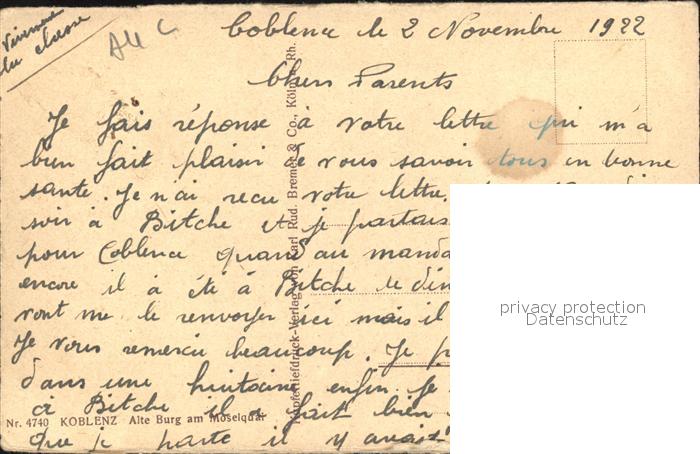 Vivement
la classe
Coblence le 2 Novembre 1922
Chers Parents
Je fais réponse à votre lettre qui m'a
bien fait plaisir de vous savoir tous en bonne
sante. Je n'ai recu votre lettre
soir à Bitche et je partais
pour Coblence quand au manda
encore il à été à Bitche le dim
vont me le renvoyer ici mais il
Je vous remerci beaucoup. Je p
dans une huitaine enfin. Je
à Bitche il a fait bien
que je parte il y avait
Nr. 4740 KOBLENZ Alte Burg am Moselquai
Kupfertiefdruck-Verlag von Karl Rud. Bremer & Co., Köln a. Rh.
privacy protection
Datenschutz